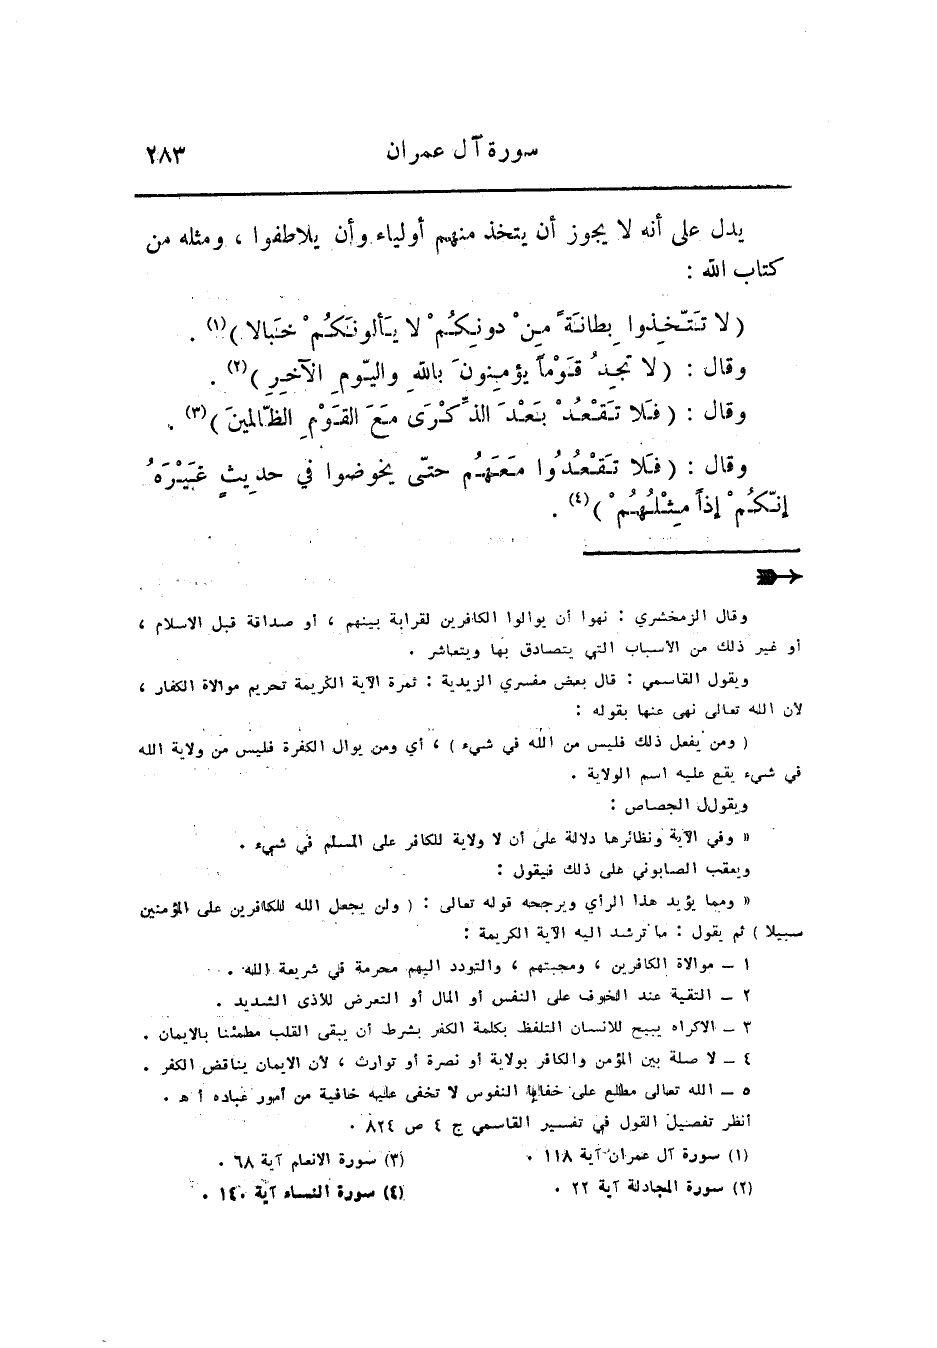 سورة آل عمران ٢٨٣
يدل على أنه لا يجوز أن يتخذ منهم أولياء وأن يلاطفوا ، ومثله من
كتاب الله :
( لا تَتّخِذوا بِطانَةً مِنْ دونِكُمْ لا يَألونَكُمْ خَبالا )(١) .
وقال : ( لا تجِدُ قَوْماً يؤمِنونَ باللهِ واليّومِ الآخِرِ )(٢) .
وقال : ( فَلا تَقْعُدْ بَعْدَ الذِّكْرَى مَعَ القَوْمِ الظّالمينَ )(٣) .
وقال : ( فَلا تَقْعُدُوا مَعَهُم حتّى يخوضوا في حديثٍ غَيْرَهُ
إنّكُمْ إذاً مِثْلُهُمْ )(٤) .
وقال الزمخشري : نهوا أن يوالوا الكافرين لقرابة بينهم ، أو صداقة قبل الاسلام ،
أو غير ذلك من الأسباب التي يتصادق بها ويتعاشر .
ويقول القاسمي : قال بعض مفسري الزيدية : ثمرة الآية الكريمة تحريم موالاة الكفار ،
لان الله تعالى نهى عنها بقوله :
( ومن يفعل ذلك فليس من الله في شيء ) ، أي ومن يوال الكفرة فليس من ولاية الله
في شيء يقع عليه اسم الولاية .
ويقولل الجصاص :
« وفي الآية ونظائرها دلالة على أن لا ولاية للكافر على المسلم في شيء .
ويعقب الصابوني على ذلك فيقول :
« ومما يؤيد هذا الرأي ويرجحه قوله تعالى : ( ولن يجعل الله للكافرين على المؤمنين
سبيلا ) ثم يقول : ما ترشد اليه الآية الكريمة :
١ ـ موالاة الكافرين ، ومحبتهم ، والتودد اليهم محرمة في شريعة الله .
٢ ـ التقية عند الخوف على النفس أو المال أو التعرض للأذى الشديد .
٣ ـ الاكراه يبيح للانسان التلفظ بكلمة الكفر بشرط أن يبقى القلب مطمئنا بالايمان .
٤ ـ لا صلة بين المؤمن والكافر بولاية أو نصرة أو توارث ، لأن الايمان يناقض الكفر .
٥ ـ الله تعالى مطلع على خفايا النفوس لا تخفى عليه خافية من أمور عباده ا هـ .
أنظر تفصيل القول في تفسير القاسمي ج ٤ ص ٨٢٤ .
(١) سورة آل عمران آية ١١٨ . (٣) سورة الانعام آية ٦٨ .
(٢) سورة المجادلة آية ٢٢ . (٤) سورة النساء آية ١٤٠ .